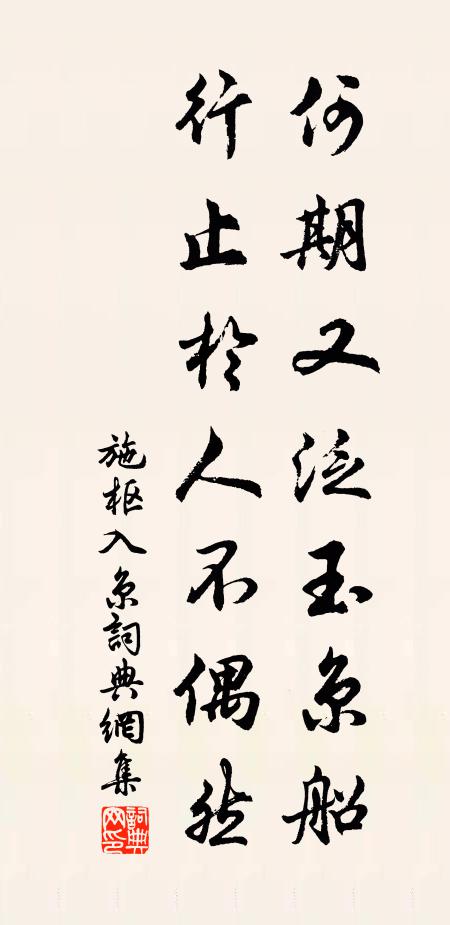 何期又泛玉京船
行止於人不偶然
施枢入京詞典網集
詞典网印